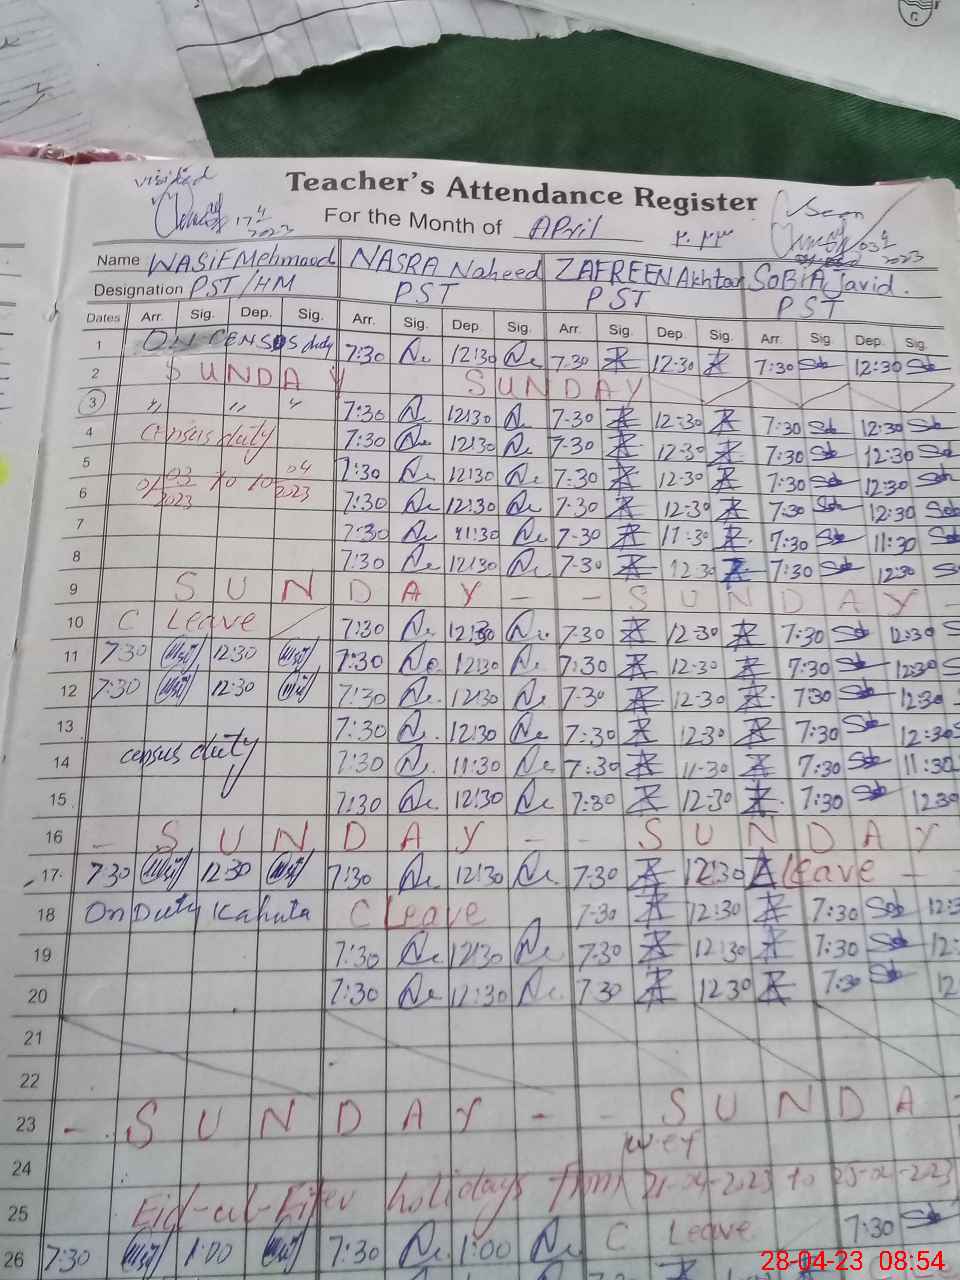 visited
17 4 2023
Teacher's Attendance Register
Seen
03 4 2023
For the Month of APril ٢٠٢٣
Name WASiF Mehmood NASRA Naheed ZAFREEN Akhtar SoBiA Javid.
Designation PST/HM PST PST PST
Dates Arr. Sig. Dep. Sig. Arr. Sig. Dep. Sig. Arr. Sig. Dep. Sig. Arr. Sig. Dep. Sig.
1 ON CENSUS duty 7:30 12:30 7.30 12:30 7:30 Sob 12:30 Sob
2 SUNDAY SUNDAY
3 " " " 7:30 12:30 7-30 12-:30 7:30 Sob 12:30 Sob
4 Census duty 7:30 12:30 7-30 12:30 7:30 Sob 12:30 Sob
5 01/03 2023 to 10 04 2023 7:30 12:30 7:30 12:30 7:30 Sob 12:30 Sob
6 7:30 12:30 7-30 12:30 7:30 Sob 12:30 Sob
7 7:30 11:30 7-30 11:30 7:30 Sob 11:30 Sob
8 7:30 12:30 7-30 12:30 7:30 Sob 12:30 S
9 SUNDAY - - SUNDAY -
10 C Leave 7:30 12:30 7-30 12-30 7:30 Sob 12:30 S
11 7:30 12:30 7:30 12:30 7:30 12-30 7:30 Sob 12:30 S
12 7:30 12:30 7:30 12:30 7-30 12:30 7:30 Sob 12:30
13 7:30 12:30 7:30 12:30 7:30 Sob 12:30 S
14 census duty 7:30 11:30 7:30 11-30 7:30 Sob 11:30
15 7:30 12:30 7:30 12-30 7:30 Sob 12:30
16 - SUNDAY - - SUNDAY
17 7:30 12:30 7:30 12:30 7:30 12:30 Leave -
18 On Duty Kahuta C Leave 7-30 12:30 7:30 Sob 12:3
19 7:30 12:30 7:30 12:30 7:30 Sob 12:
20 7:30 12:30 7:30 12:30 7:30 Sob 12
21
22
23 - SUNDAY - - SUNDA -
24 wef
25 Eid-ul-Fiter holidays from 21-04-2023 to 25-04-2023
26 7:30 1:00 7:30 1:00 C Leave 7:30 Sob
28-04-23 08:54